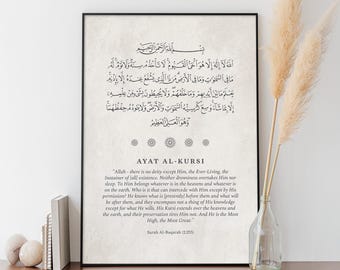 بِسْمِ اللَّهِ الرَّحْمَٰنِ الرَّحِيمِ
اللَّهُ لَا إِلَٰهَ إِلَّا هُوَ الْحَيُّ الْقَيُّومُ لَا تَأْخُذُهُ سِنَةٌ وَلَا نَوْمٌ لَهُ
مَا فِي السَّمَاوَاتِ وَمَا فِي الْأَرْضِ مَنْ ذَا الَّذِي يَشْفَعُ عِنْدَهُ إِلَّا بِإِذْنِهِ
يَعْلَمُ مَا بَيْنَ أَيْدِيهِمْ وَمَا خَلْفَهُمْ وَلَا يُحِيطُونَ بِشَيْءٍ مِنْ عِلْمِهِ
إِلَّا بِمَا شَاءَ وَسِعَ كُرْسِيُّهُ السَّمَاوَاتِ وَالْأَرْضَ وَلَا يَئُودُهُ حِفْظُهُمَا
وَهُوَ الْعَلِيُّ الْعَظِيمُ
AYAT AL-KURSI
"Allah - there is no deity except Him, the Ever-Living, the
Sustainer of [all] existence. Neither drowsiness overtakes Him nor
sleep. To Him belongs whatever is in the heavens and whatever is
on the earth. Who is it that can intercede with Him except by His
permission? He knows what is [presently] before them and what will
be after them, and they encompass not a thing of His knowledge
except for what He wills. His Kursi extends over the heavens and
the earth, and their preservation tires Him not. And He is the Most
High, the Most Great."
Surah Al-Baqarah (2:255)